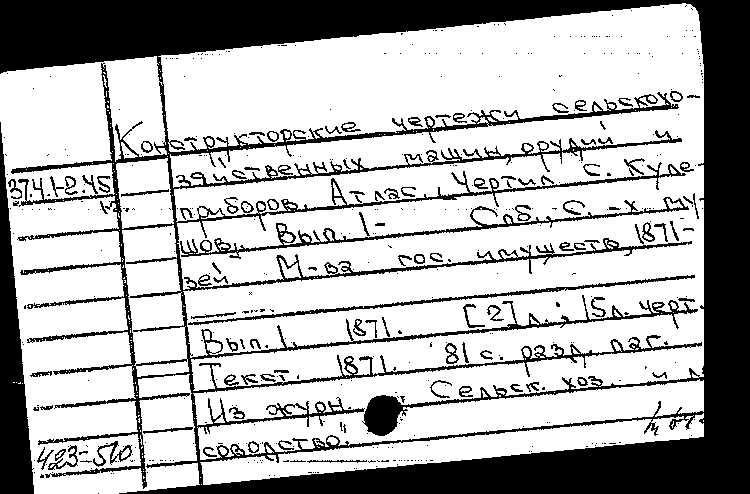 Конструкторские чертежи сельскохо-
37.4.1-2.45 зяйственных машин, орудий и
1-2. приборов. Атлас. Чертил С. Куле-
шов. Вып. 1- Спб., С.-х. му-
зей М-ва гос. имуществ, 1871-
Вып. 1. 1871. [2] л.; 15 л. черт.
Текст. 1871. 81 с. разд. паг.
"Из журн. Сельск. хоз. и л
423-510 соводство".